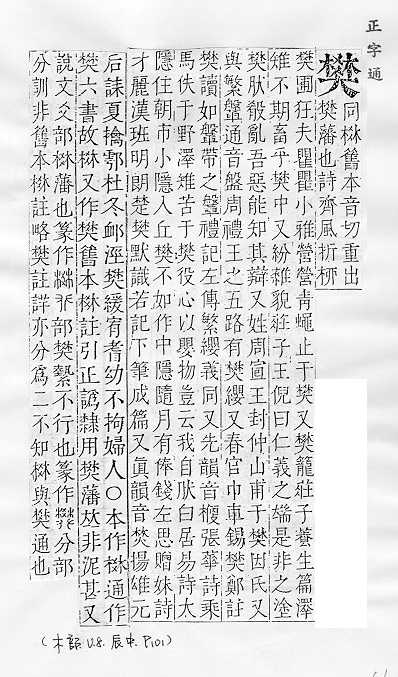 正字通
樊
同棥舊本音切重出
樊藩也詩齊風折柳
樊圃狂夫瞿瞿小雅營營青蠅止于樊又樊籠莊子養生篇澤
雉不期畜乎樊中又紛雜貌莊子王倪曰仁義之端是非之塗
樊肰殽亂吾惡能知其辯又姓周宣王封仲山甫于樊因氏又
與繁鞶通音盤周禮王之五路有樊纓又春官巾車錫樊鄭註
樊讀如鞶帶之鞶禮記左傳繁纓義同又先韻音楩張華詩乘
馬佚于野澤雉苦于樊役心以嬰物豈云我自肰白居易大
隱住朝市小隱入丘樊不如作中隱隨月有俸錢左思贈妹詩
才麗漢班明朗楚樊默識若記下筆成篇又眞韻音樊揚雄元
后誄夏擒鄠杜冬卹涇樊緩宥耆幼不拘婦人○本作棥通作
樊六書故棥又作樊舊本棥註引正譌隷用樊藩𠀤非泥甚又
說文爻部棥藩也篆作 部樊驇不行也篆作 分部
分訓非舊本棥註略樊註詳亦分爲二不知棥與樊通也
(木部 U.8. 辰中. P101)